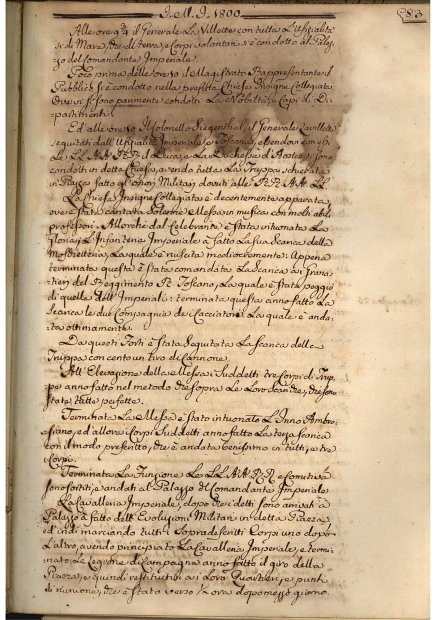 J. M. J. 1800.
83
Alle ore 9¾ il Generale La Villette con tutta L'Uffizialità
di Mare, che di terra, e Corpi volontari s'è condotto al Palaz-
zo del Comandante Imperiale.
Poco prima delle ore 10 il Magistrato Rappresentante il
Pubblico s'è condotto nella predetta Chiesa Insigne Collegiata,
Ove si sono parimente condotti La Nobiltà, e Capi di Di-
partimenti.
Ed alle ore 10 Il Colonello Siegenthal, il Generale
seguitati dall'Uffizialità Imperiale, e Toscana, essendovi
Le LL. AA. RR. il Duca, e La Duchessa di Aosta, si sono
condotti in detta Chiesa, avendo tutta La Truppa schierata
in Piazza fatto gl'onori Militari dovuti alle RR. AA. LL.
La Chiesa Insigne Collegiata è decentemente apparata,
ove è stata cantata Solenne Messa in musica con molti abili
professori. Allorchè dal Celebrante è stata intuonata La
Gloria, L'Infanteria Imperiale à fatto La sua Scarica della
Moschetteria, La quale è riuscita mediocremente: Appena
terminata questa è stata comandata La Scarica ai Grana-
tieri del Reggimento R. Toscano, La quale è stata peggio
di quella dell'Imperiali: terminata questa anno fatto La
Scarica le due Compagnie de' Cacciatori La quale è anda-
ta ottimamente.
Da questi Forti è stata seguitata La Scarica delle
Truppa con cento un tiro di Cannone.
All'Elevazione della Messa i Suddetti tre Corpi di Trup-
pe anno fatte nel metodo di sopra Le Loro Scariche, che sono
state tutte perfette.
Terminata La Messa è stato intuonato L'Inno Ambro-
siano, ed allora i Corpi Suddetti anno fatto La terza Scarica
con il modo prescritto, che è andata benissimo in tutti, e tre
i Corpi.
Terminata La Funzione Le LL. AA. RR. e Comitiva
sono sortiti, e andati al Palazzo del Comandante Imperiale.
La Cavalleria Imperiale, dopo che i detti sono arrivati a
Palazzo à fatto dell'Evoluzioni Militari in detta Piazza,
ed indi marciando tutti i Sopradescritti Corpi uno dopo
L'altro, avendo principiato La Cavalleria Imperiale, e termi-
nato Le Legione di Campagna anno fatto il giro della
Piazza, e quindi restituitisi a i Loro Quartieri, e punti
di riunione, che è stato verso ¼ ora dopo mezzo giorno.